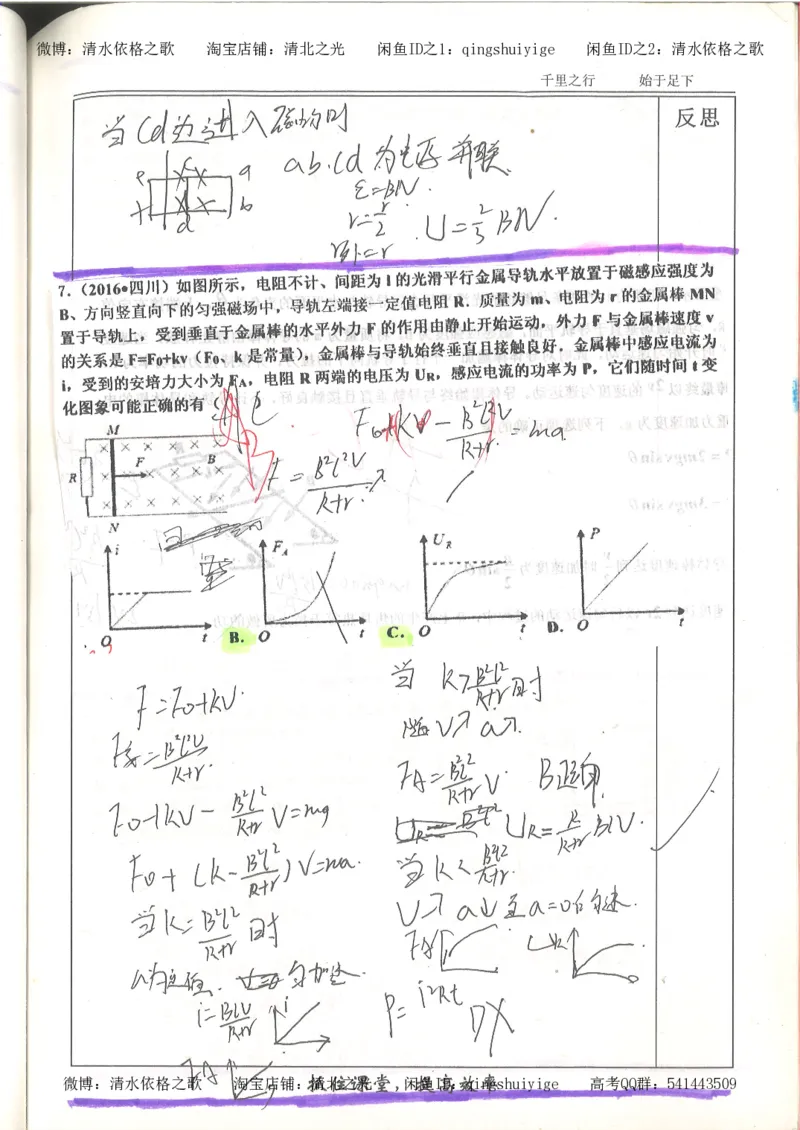 微博：清水依格之歌 淘宝店铺：清北之光 闲鱼ID之1：qingshuiyige 闲鱼ID之2：清水依格之歌
千里之行 始于足下
反思
当cd边进入磁场时
ab.cd为电源并联
ε=BlV.
r=r/2
r外=r
U=2/3 BlV.
7．（2016•四川）如图所示，电阻不计、间距为 l 的光滑平行金属导轨水平放置于磁感应强度为
B、方向竖直向下的匀强磁场中，导轨左端接一定值电阻 R．质量为 m、电阻为 r 的金属棒 MN
置于导轨上，受到垂直于金属棒的水平外力 F 的作用由静止开始运动，外力 F 与金属棒速度 v
的关系是 F=F₀+kv（F₀、k 是常量），金属棒与导轨始终垂直且接触良好，金属棒中感应电流为
i，受到的安培力大小为 FA，电阻 R 两端的电压为 UR，感应电流的功率为 P，它们随时间 t 变
化图象可能正确的有（
M
F
B
R
N
i
t
O
B.
FA
O
t
C.
UR
O
t
D.
P
O
t
F=F₀+kV.
F安=B²l²V/R+r.
F₀+kV-B²l²/R+r V=ma
F₀+(k-B²l²/R+r)V=ma.
当k=B²l²/R+r时
匀加速.
i=BlV/R+r
i
FA
当 k>B²l²/R+r时
随V↗ a↗.
FA=B²l²/R+r V. B正确
UR=R/R+r BlV.
当k<B²l²/R+r.
V↗ a↓至a=0匀速.
FA
UR
P=i²Rt
D╳
微博：清水依格之歌 淘宝店铺：
抓住课堂，提高效率
qingshuiyige 高考QQ群：541443509